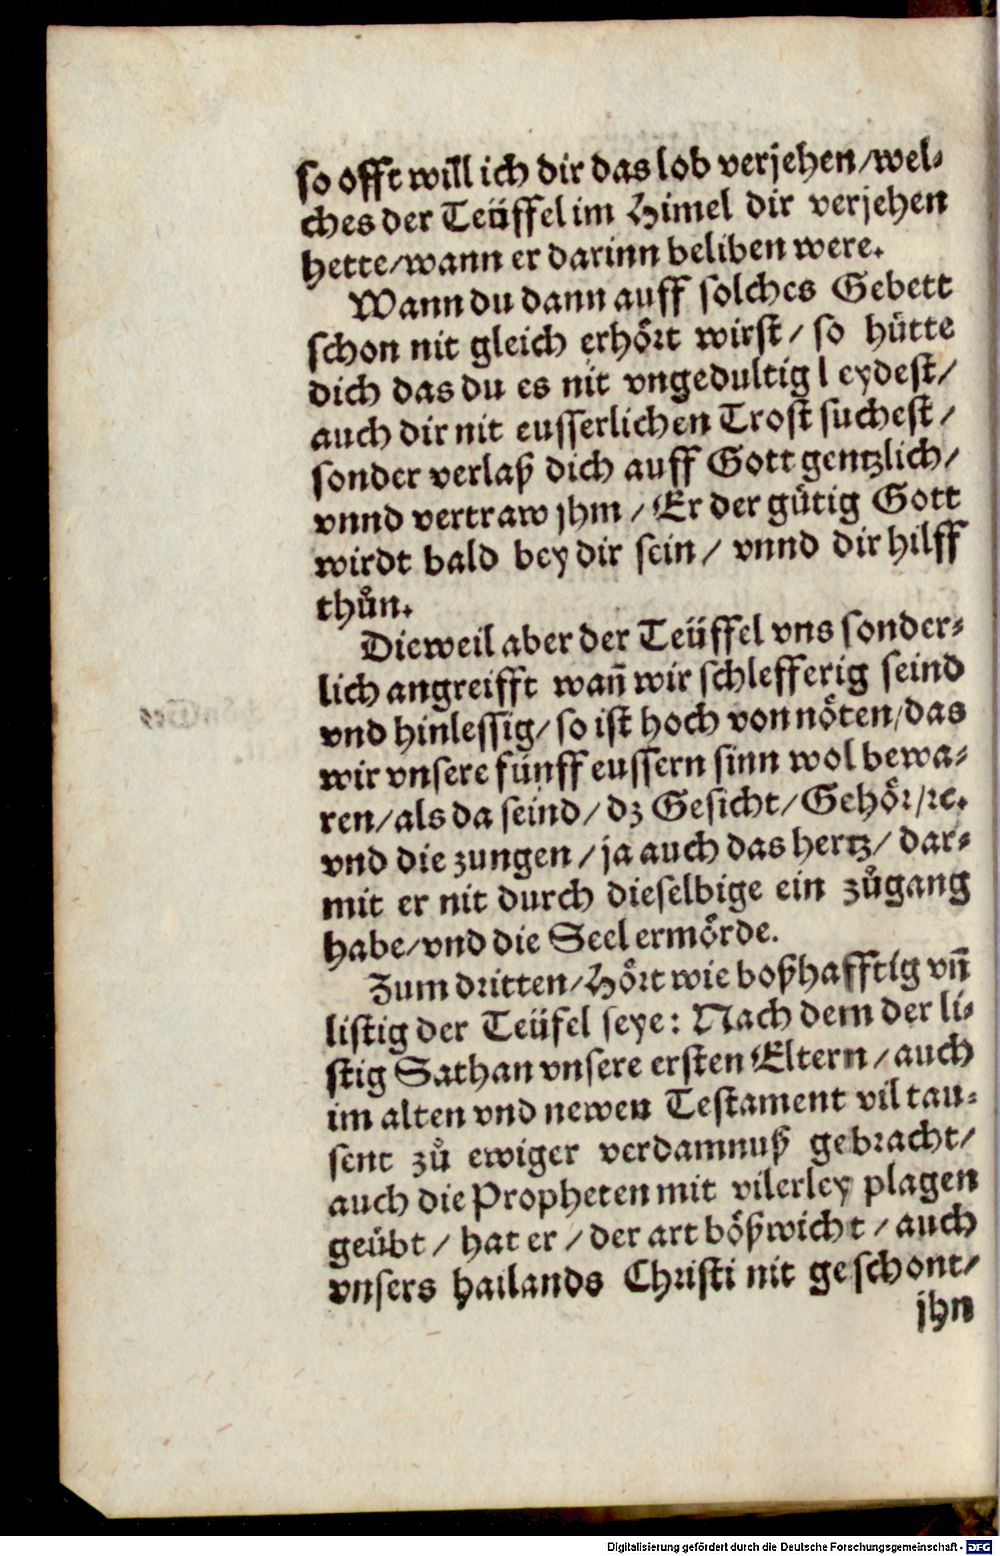 so offt will ich dir das lob verjehen/wel⸗
ches der Teüffel im Himel dir verjehen
hette/wann er darinn beliben were.
Wann du dann auff solches Gebett
schon nit gleich erhoͤrt wirst/ so huͤtte
dich das du es nit vngedultig leydest/
auch dir nit eusserlichen Trost suchest/
sonder verlaß dich auff Gott gentzlich/
vnnd vertraw jhm/ Er der guͤtig Gott
wirdt bald bey dir sein/ vnnd dir hilff
thuͦn.
Dieweil aber der Teüffel vns sonder⸗
lich angreifft wañ wir schlefferig seind
vnd hinlessig/ so ist hoch von noͤten/das
wir vnsere fünff eussern sinn wol bewa⸗
ren/als da seind/ dz Gesicht/Gehoͤr/ꝛc.
vnd die zungen/ja auch das hertz/ dar⸗
mit er nit durch dieselbige ein zuͦgang
habe/vnd die Seel ermoͤrde.
Zum dritten/Hoͤrt wie boßhafftig vñ
listig der Teüfel seye: Nach dem der li⸗
stig Sathan vnsere ersten Eltern/auch
im alten vnd newen Testament vil tau⸗
sent zuͦ ewiger verdamnuß gebracht/
auch die Propheten mit vilerley plagen
geuͤbt/ hat er/der art boͤßwicht/auch
vnsers hailands Christi nit geschont/
jhn
Digitalisierung gefördert durch die Deutsche Forschungsgemeinschaft - DFG